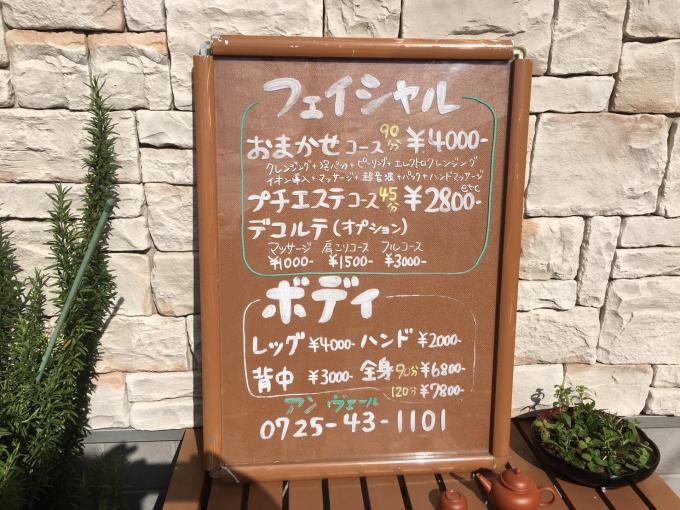 フェイシャル
おまかせコース 90分 ¥4000-
クレンジング+泡パック+ピーリング+エレクトロクレンジング
イオン導入+マッサージ+超音波+パック+ハンドマッサージ
etc
プチエステコース 45分 ¥2800-
デコルテ(オプション)
マッサージ 肩こりコース フルコース
¥1000- ¥1500- ¥3000-
ボディ
レッグ ¥4000- ハンド ¥2000-
背中 ¥3000- 全身 90分 ¥6800-
120分 ¥7800-
アン ヴェール
0725-43-1101